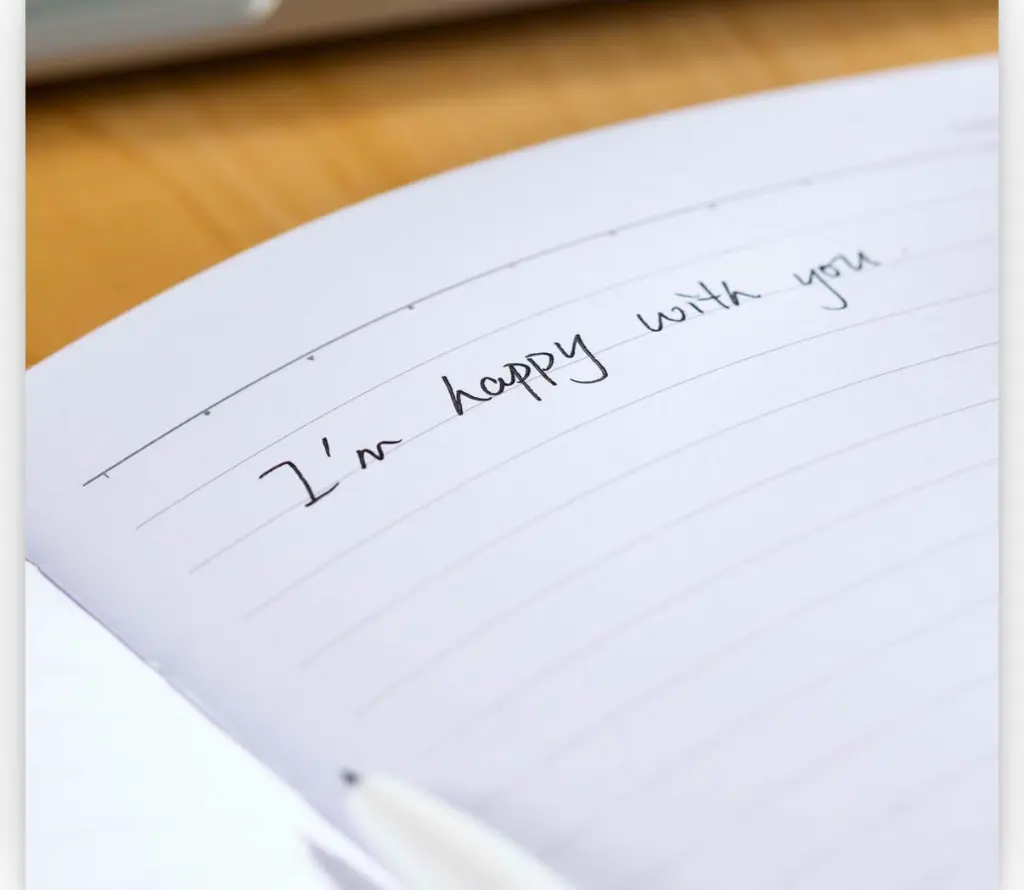 I'm happy with you.